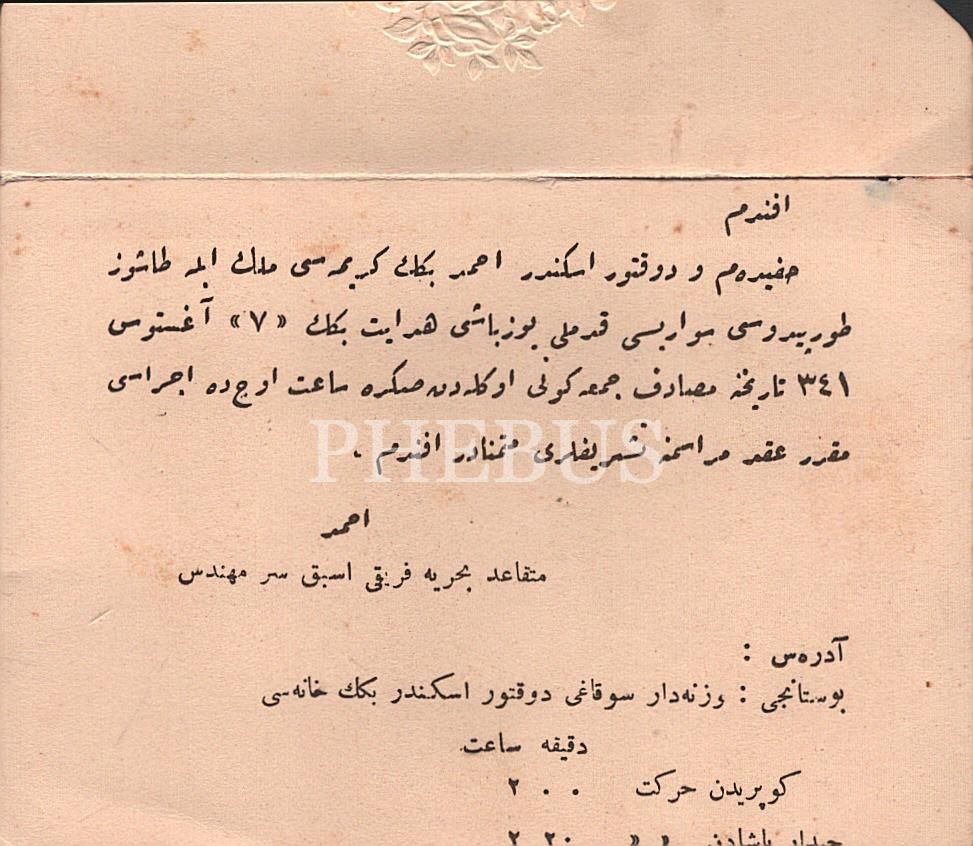 افندم
حفیده‌م و دوقتور اسكندر احمد بكك كریمه‌سی ملك ایله طاشوز
طورپیدوسی سواریسی قدملی یوزباشی هدایت بكك «٧» آغستوس
٣٤١ تاریخنه مصادف جمعه كونی اوكله‌دن صكره ساعت اوچده اجراسی
مقرر عقد مراسمنه تشریفلری متمنادر افندم .
PHEBUS
احمد
متقاعد بحریه فریقی اسبق سر مهندس
آدره‌س :
بوستانجی : وزنه‌دار سوقاغی دوقتور اسكندر بكك خانه‌سی
دقیقه ساعت
كوپریدن حركت ٠ ٠ ٢
حیدر پاشادن « « ٢ ٢٠